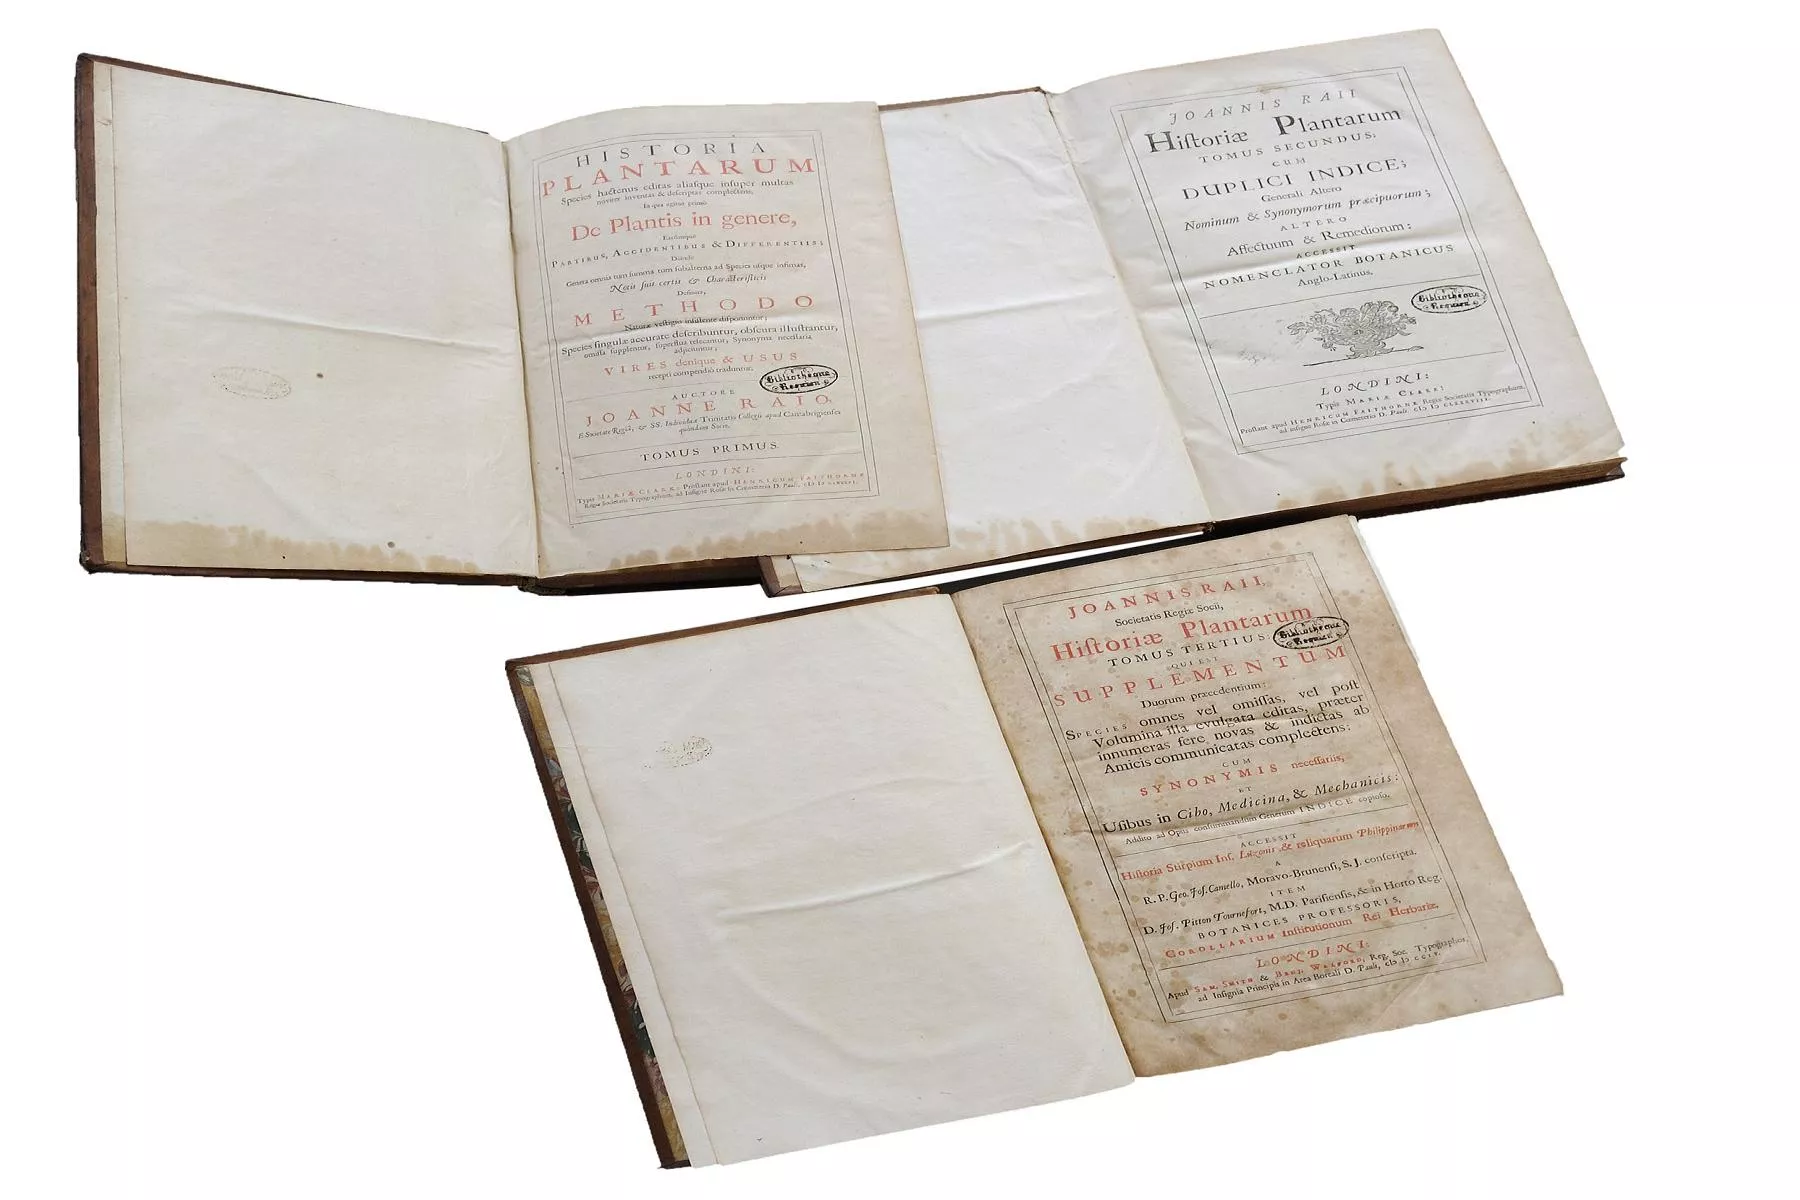 HISTORIA
PLANTARUM
Species hactenus editas aliasque insuper multas
noviter inventas & descriptas complectens,
In qua agitur primò
De Plantis in genere,
Earúmque
PARTIBUS, ACCIDENTIBUS & DIFFERENTIIS;
Deinde
Genera omnia tum summa tum subalterna ad Species usque infimas,
Notis suis certis & Characteristicis
Definita,
METHODO
Naturæ vestigiis insistente disponuntur;
Species singulæ accurate describuntur, obscura illustrantur,
omissa supplentur, superflua resecantur, Synonyma necessaria
adjiciuntur;
VIRES denique & USUS
recepti compendiò traduntur.
AUCTORE
JOANNE RAIO,
E Societate Regiâ, & SS. Individuæ Trinitatis Collegii apud Cantabrigienses
quondam Socio.
TOMUS PRIMUS.
LONDINI:
Typis MARIÆ CLARK: Prostant apud HENRICUM FAITHORNE
Regiæ Societatis Typographum, ad Insigne Rosæ in Cœmeterio D. Pauli,
Bibliothèque
Requien
JOANNIS RAII
Historiæ Plantarum
TOMUS SECUNDUS:
CUM
DUPLICI INDICE;
Generali Altero
Nominum & Synonymorum præcipuorum;
ALTERO
Affectuum & Remediorum:
ACCESSIT
NOMENCLATOR BOTANICUS
Anglo-Latinus.
Bibliothèque
Requien
LONDINI:
Typis MARIÆ CLARK:
Prostant apud HENRICUM FAITHORNE Regiæ Societatis Typographum
ad insigne Rosæ in Cœmeterio D. Pauli. CIƆ IƆ CLXXXVIII.
JOANNIS RAII,
Societatis Regiæ Socii,
Historiæ Plantarum
TOMUS TERTIUS:
QUI EST
SUPPLEMENTUM
Duorum præcedentium:
SPECIES omnes vel omissas, vel post
Volumina illa evulgata editas, præter
innumeras fere novas & indictas ab
Amicis communicatas complectens:
CUM
SYNONYMIS necessariis,
ET
Usibus in Cibo, Medicina, & Mechanicis:
Addito ad Opus consummandum Generum INDICE copioso.
ACCESSIT
Historia Stirpium Ins. Luzonis & reliquarum Philippinarum
A
R. P. Geo. Jos. Camello, Moravo-Brunensi, S. J. conscripta.
ITEM
D. Jos. Pitton Tournefort, M.D. Parisiensis, & in Horto Reg.
BOTANICES PROFESSORIS,
COROLLARIUM Institutionum Rei Herbariæ.
LONDINI:
Apud SAM. SMITH & BENJ. WALFORD, Reg. Soc. Typographos,
ad Insignia Principis in Area Boreali D. Pauli, CIƆ IƆ CCIV.
Bibliothèque
Requien